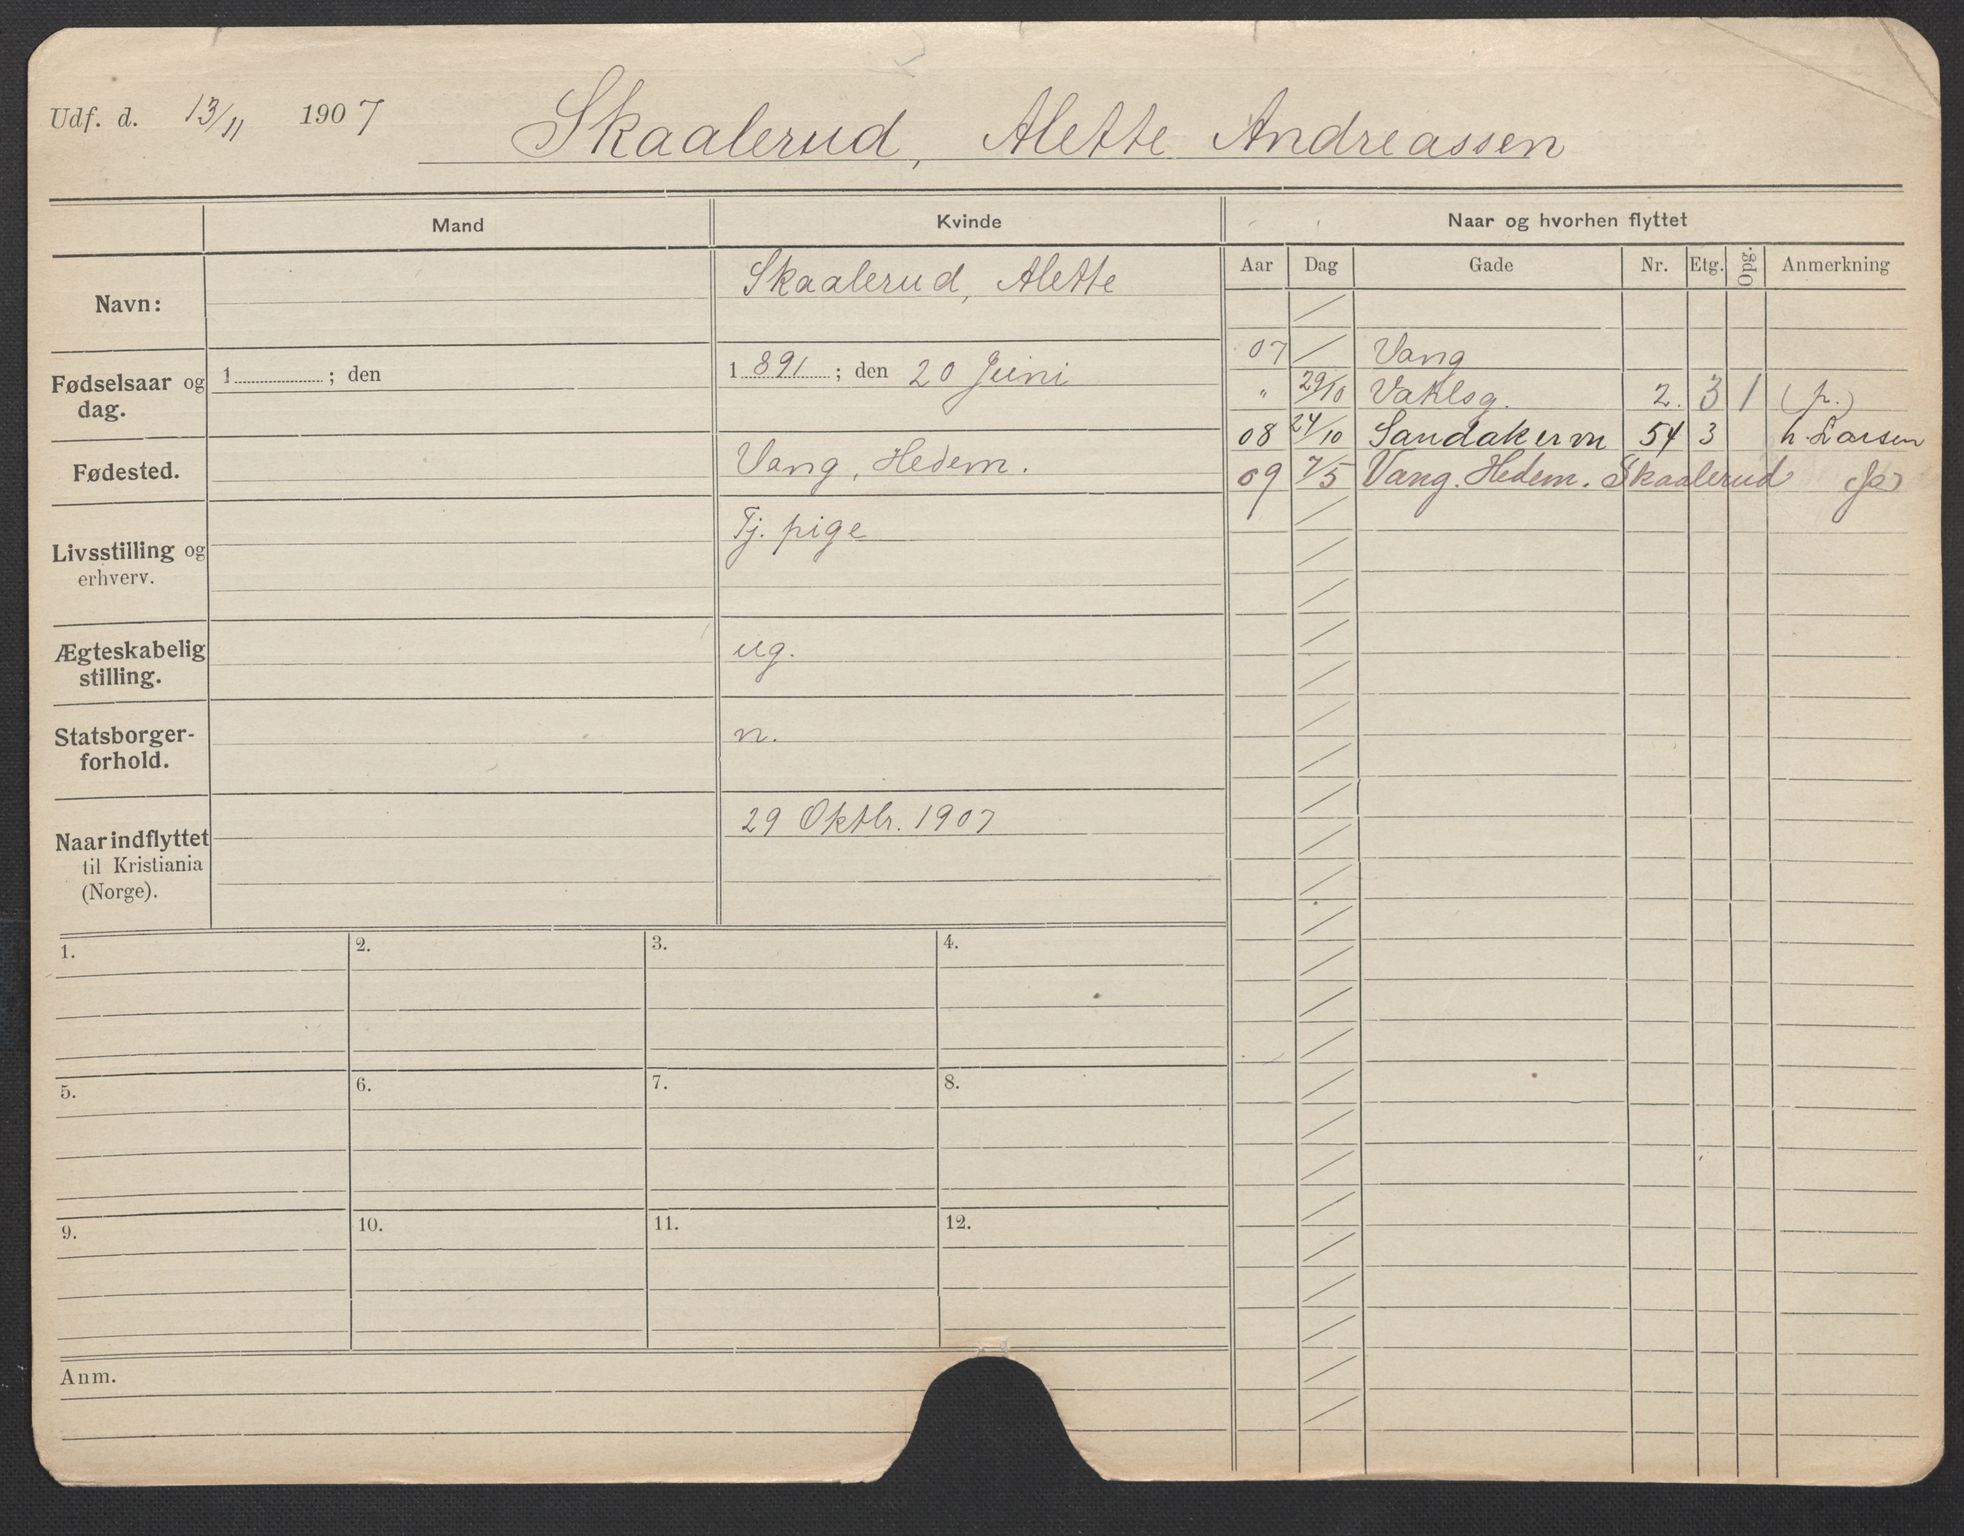 Udf. d. 13/11 1907 Skaalerud, Alette Andreassen
Mand Kvinde Naar og hvorhen flyttet
Aar Dag Gade Nr. Etg. Opg. Anmerkning
Navn: Skaalerud, Alette
07 Vang
Fødselsaar og dag. 1 ; den 1891 ; den 20 Juni
" 29/10 Vahlsg. 2. 3 1 (p.)
08 24/10 Sandakervn 54 3 h. Larsen
Fødested. Vang, Hedem.
09 7/5 Vang. Hedem. Skaalerud
Livsstilling og erhverv. Tj. pige
Ægteskabelig stilling. ug.
Statsborger-
forhold. n.
Naar indflyttet
til Kristiania
(Norge). 29 Oktbr. 1907
1. 2. 3. 4.
5. 6. 7. 8.
9. 10. 11. 12.
Anm.